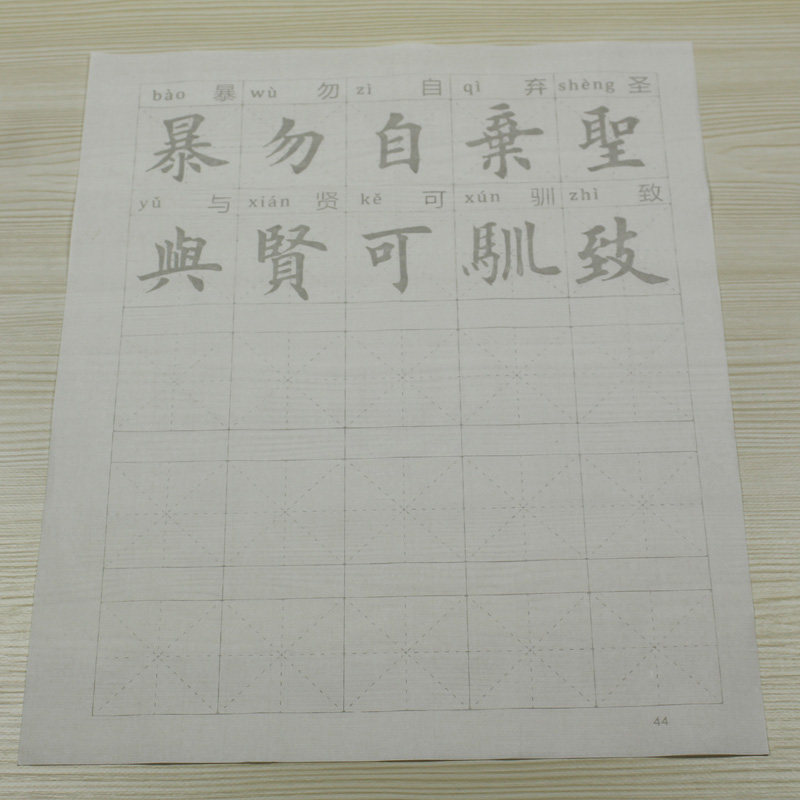 bào 暴 wù 勿 zì 自 qì 弃 shèng 圣
暴 勿 自 棄 聖
yǔ 与 xián 贤 kě 可 xún 驯 zhì 致
與 賢 可 馴 致
44